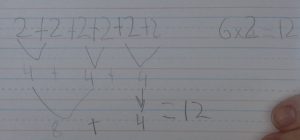 2+2+2+2+2+2 6x2=12
4 + 4 + 4
8 + 4 =12